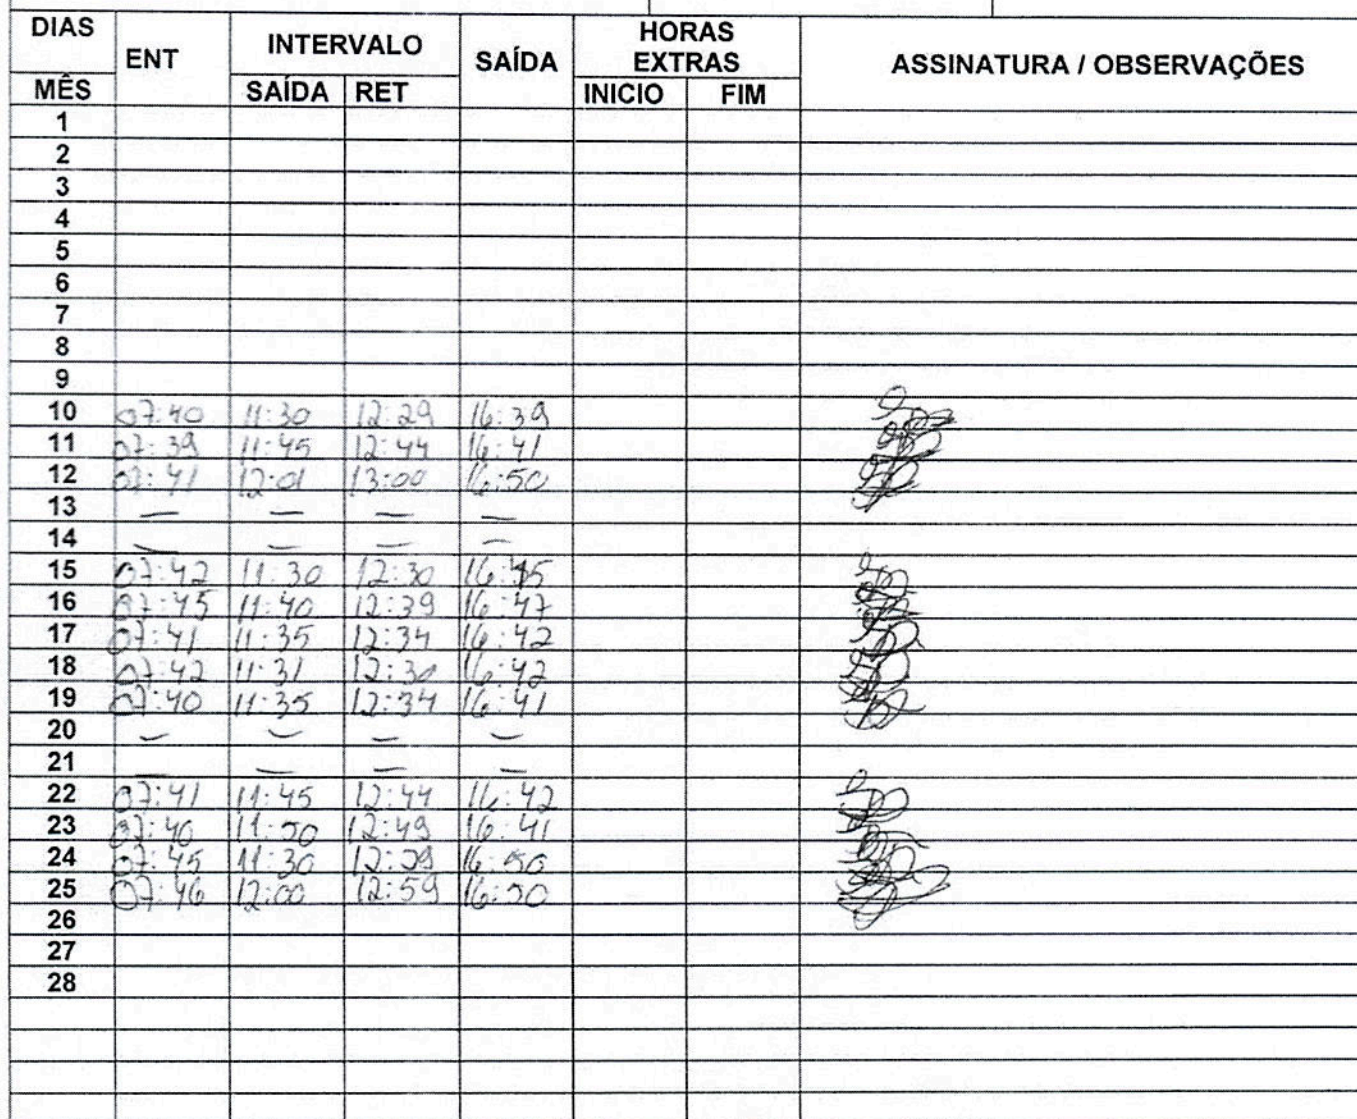 DIAS ENT INTERVALO SAÍDA HORAS EXTRAS ASSINATURA / OBSERVAÇÕES
MÊS SAÍDA RET INICIO FIM
1
2
3
4
5
6
7
8
9
10 07:40 11:30 12:29 16:39
11 07:39 11:45 12:44 16:41
12 07:41 12:01 13:00 16:50
13 — — — —
14 — — — —
15 07:42 11:30 12:30 16:45
16 07:45 11:40 12:39 16:47
17 07:41 11:35 12:34 16:42
18 07:42 11:31 12:30 16:42
19 07:40 11:35 12:34 16:41
20 — — — —
21 — — — —
22 07:41 11:45 12:44 16:42
23 07:40 11:50 12:49 16:41
24 07:45 11:30 12:29 16:50
25 07:46 12:00 12:59 16:50
26
27
28